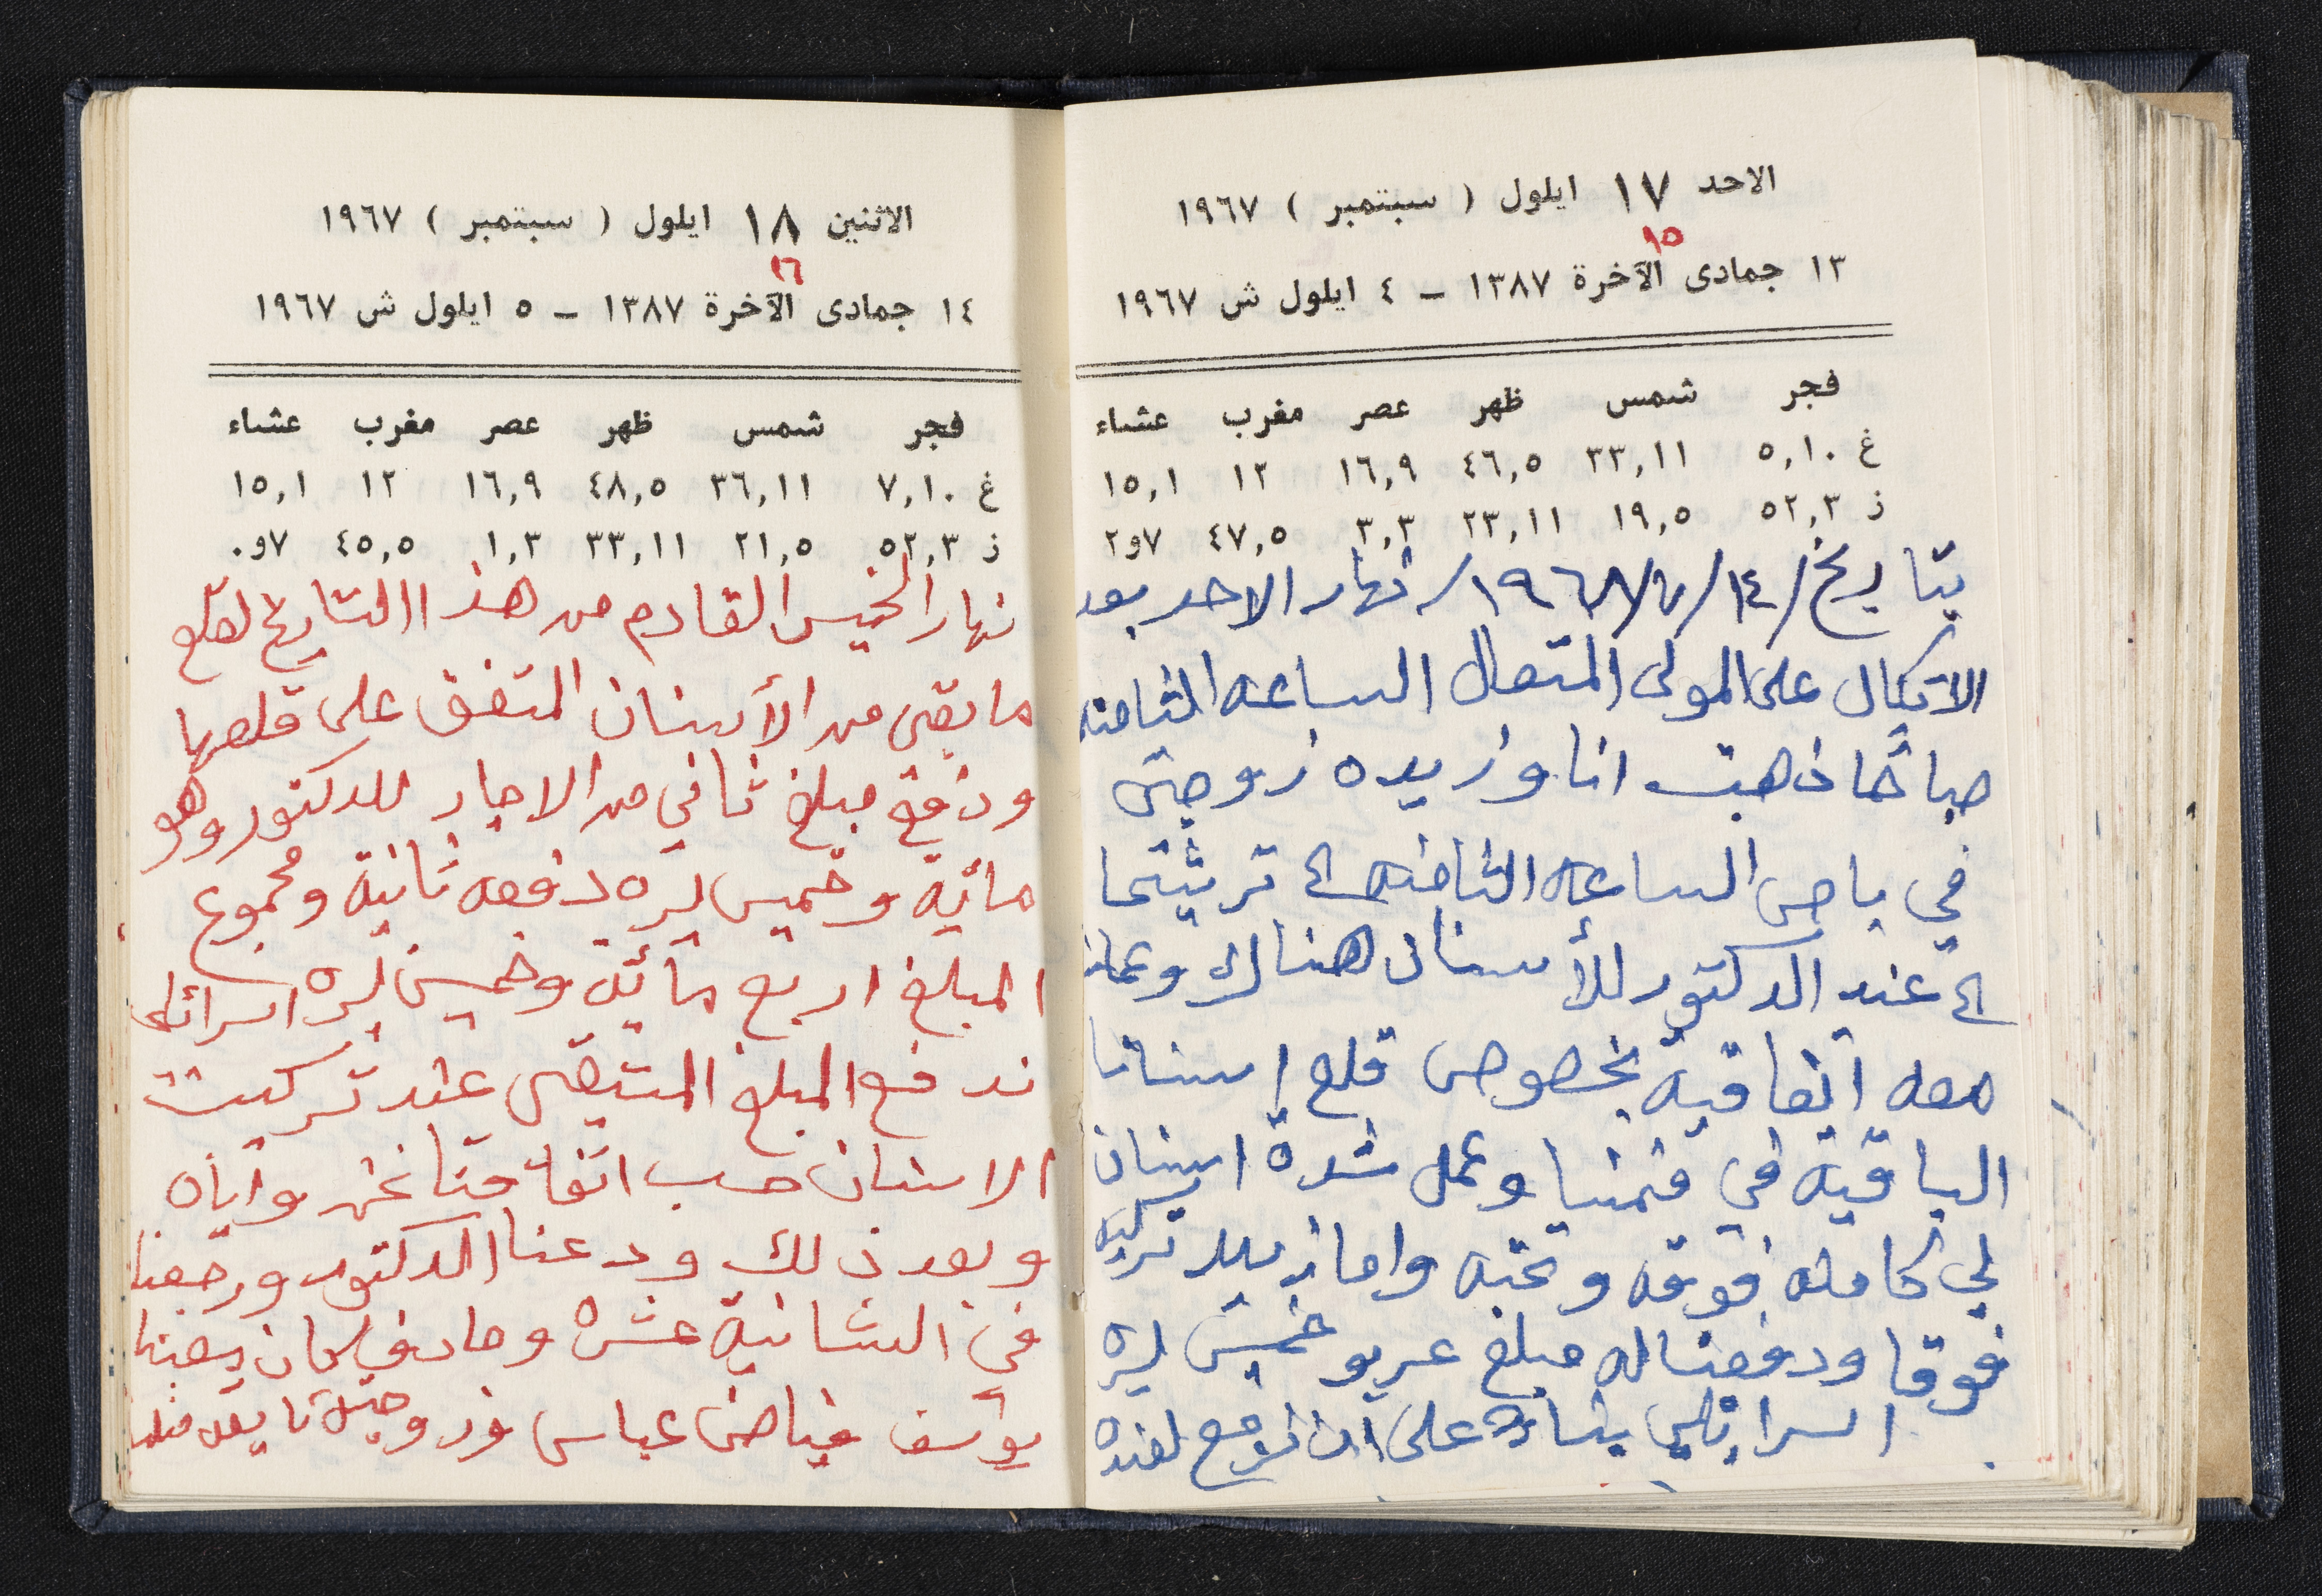 الاحد ١٧ ايلول ( سبتمبر ) ١٩٦٧
١٥
١٣ جمادى الآخرة ١٣٨٧ – ٤ ايلول ش ١٩٦٧
فجر شمس ظهر عصر مغرب عشاء
غ ٥,١٠ ٣٣,١١ ٤٦,٥ ١٦,٩ ١٢ ١٥,١
ز ٥٢,٣ ١٩,٥ ٢٣,١١ ٣,٣ ٤٧,٥ ٧و٢
بتاريخ /١٤/٧/١٩٦٨/ نهار الاحد بعد
الاتكال على المولى المتعال الساعه الثامنه
صباحًا ذهبت انا وزيده زوجتي
في باص الساعه الثامنه الى ترشيحا
الى عند الدكتور للأسنان هناك وعملنا
معه اتفاقية بخصوص قلع اسناننا
الباقية في فمنا وعمل شدة اسنان
لي كامله فوقه وتحته واما زيده تركيبه
فوقا ودفعنا له مبلغ خمسين ليره
اسرائيلي بناء على ان نرجع لعنده
الاثنين ١٨ ايلول ( سبتمبر ) ١٩٦٧
١٦
١٤ جمادى الآخرة ١٣٨٧ – ٥ ايلول ش ١٩٦٧
فجر شمس ظهر عصر مغرب عشاء
غ ٧,١٠ ٣٦,١١ ٤٨,٥ ١٦,٩ ١٢ ١٥,١
ز ٥٢,٣ ٢١,٥ ٣٣,١١ ١,٣ ٤٥,٥ ٧و٠
نهار الخميس القادم من هذا التاريخ لقلع
ما بقى من الأسنان المتفق على قلعها
ودفع مبلغ ثاني من الاجار للدكتور وهو
مائية وخمسين ليره دفعه ثانية ومجموع
المبلغ اربع مائيه وخمسين ليره اسرائلي
ندفع المبلغ المتبقى عند تركيب
الاسنان حسب اتفاقنا نحن واياه
وبعد ذلك ودعنا الدكتور ورجعنا
في الثانية عشره وصادف كان بيعنا
يوسف فياض عباس وزوجته نايفه